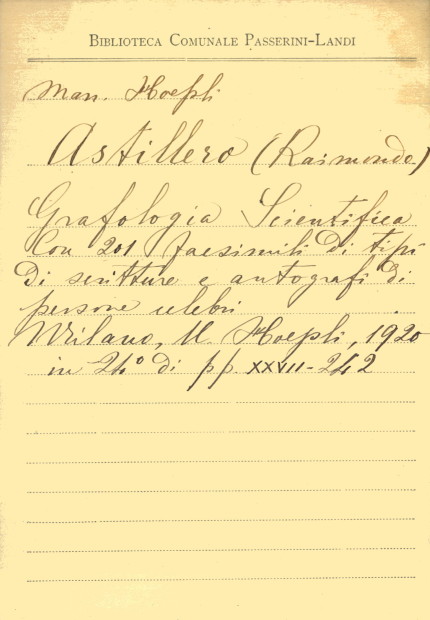 BIBLIOTECA COMUNALE PASSERINI-LANDI
Man. Hoepli
Astillero (Raimondo)
Grafologia Scientifica
Con 201 facsimili di tipi
di scritture e autografi di
persone celebri
Milano, U. Hoepli, 1920
in 24° di pp. XXVII-242